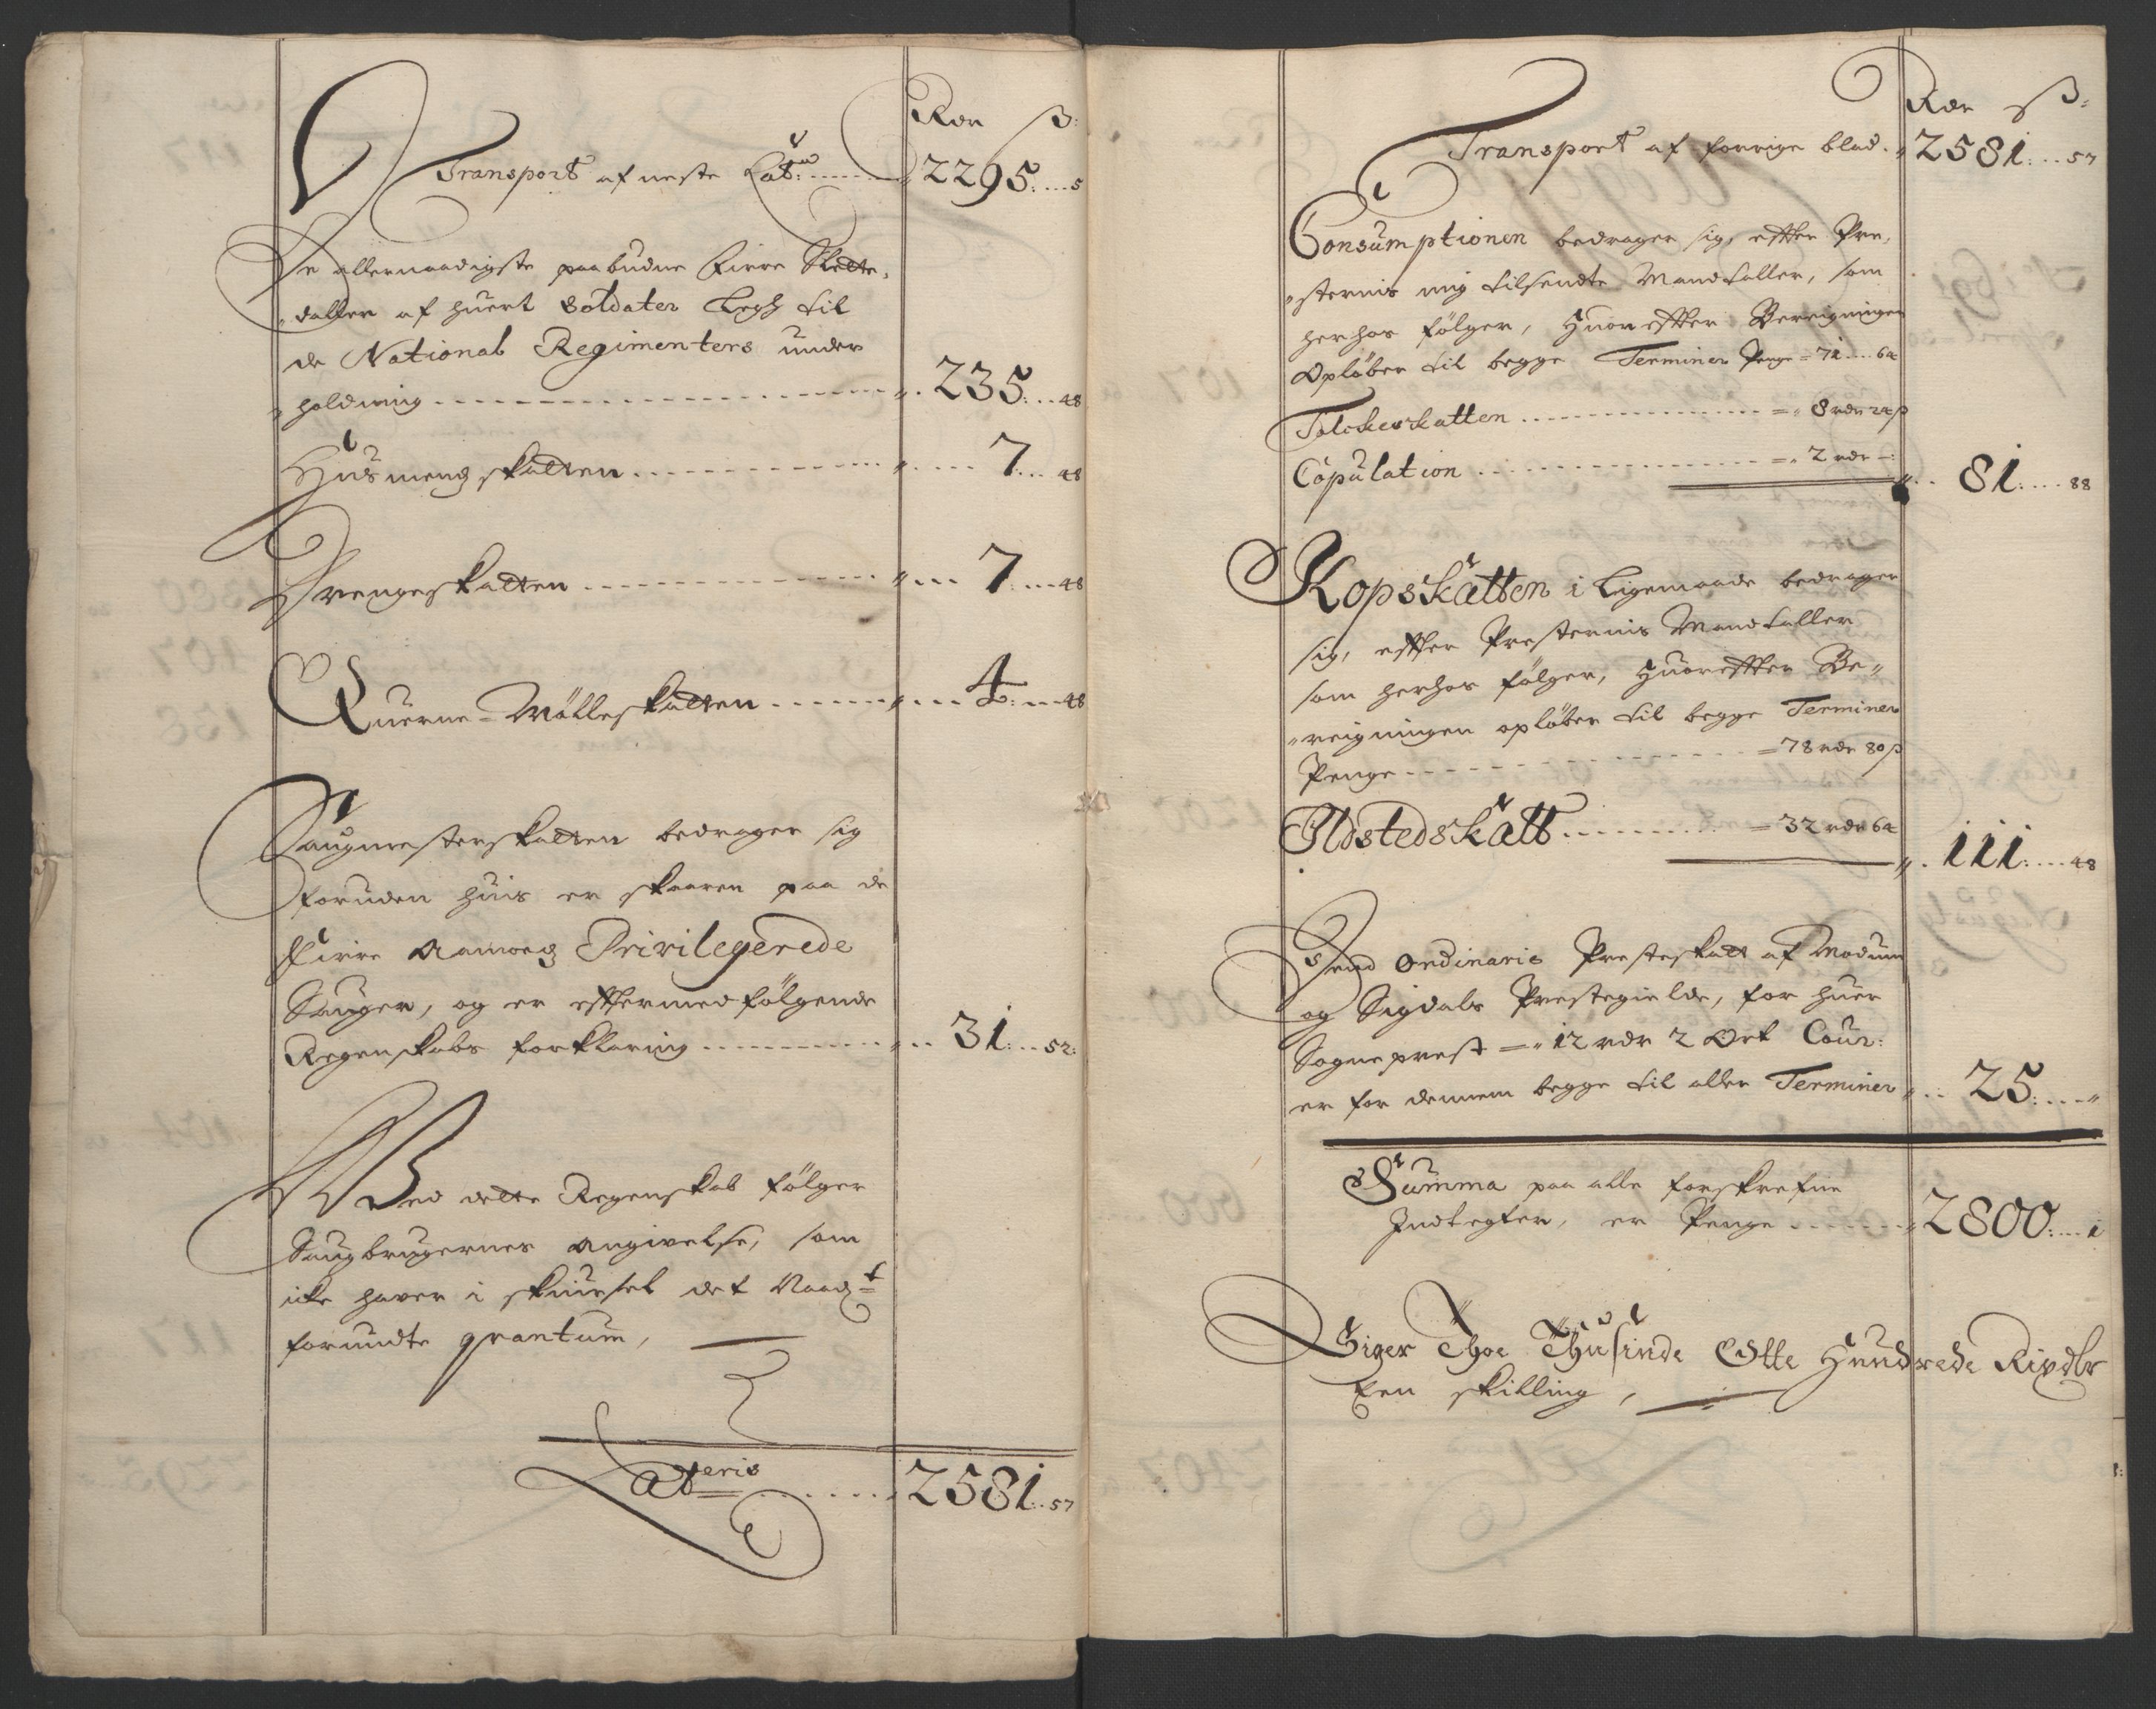 Rdr ß:
Transport af neste Lat: 2295: 5
De allernaadigste paabudne Fiire Slette-
daller af huert Soldater Legh til
de National Regimenters under
holdning 235: 48
Huusmends skatten 7: 48
Drengeskatten 7: 48
Querne-Mølleskatten 4: 48
Saugmesterskatten bedrager sig
foruden huis er skaaren paa de
Fiire Privilegerede
Sauger, og er effter medfølgende
Regenskabs forklaring 31: 52:
Ved dette Regenskab følger
Saugbrugernes angivelse, som
icke haver i skuursel det Naadst
forundte qvantum,
Lateris 2581: 57
Rdr ß:
Transport af forrige blad 2581: 57
Consumptionen bedrager sig, effter Pre-
sternis mig tilsendte Mandtaller, som
herhos følger, Huor effter Beregningen
Opløber til begge Terminer Penge = 71 64
Tolckeskatten = 8 rdr 24 ß
Copulation = 2 rdr -:
81: 88
Kopskatten i Ligemaade bedrager
sig, effter Presternis Mandtaller
som herhos følger, Huoreffter Be-
reigningen opløber til begge Terminer
Penge = 78 rdr 80 ß
Ildstedskatt = 32 rdr 64
111: 48
Ordinarie Presteskatt af Modum
og Sigdals Prestegielde, for huer
Sogneprest = 12 rdr 2 Ort Cour:
er for dennem begge til alle Terminer 25:
Summa paa alle forskrefne
Indtegter, er Penge 2800: 1
Siger Thoe Thusinde Otte Hundrede Rixdlr
Een skilling,